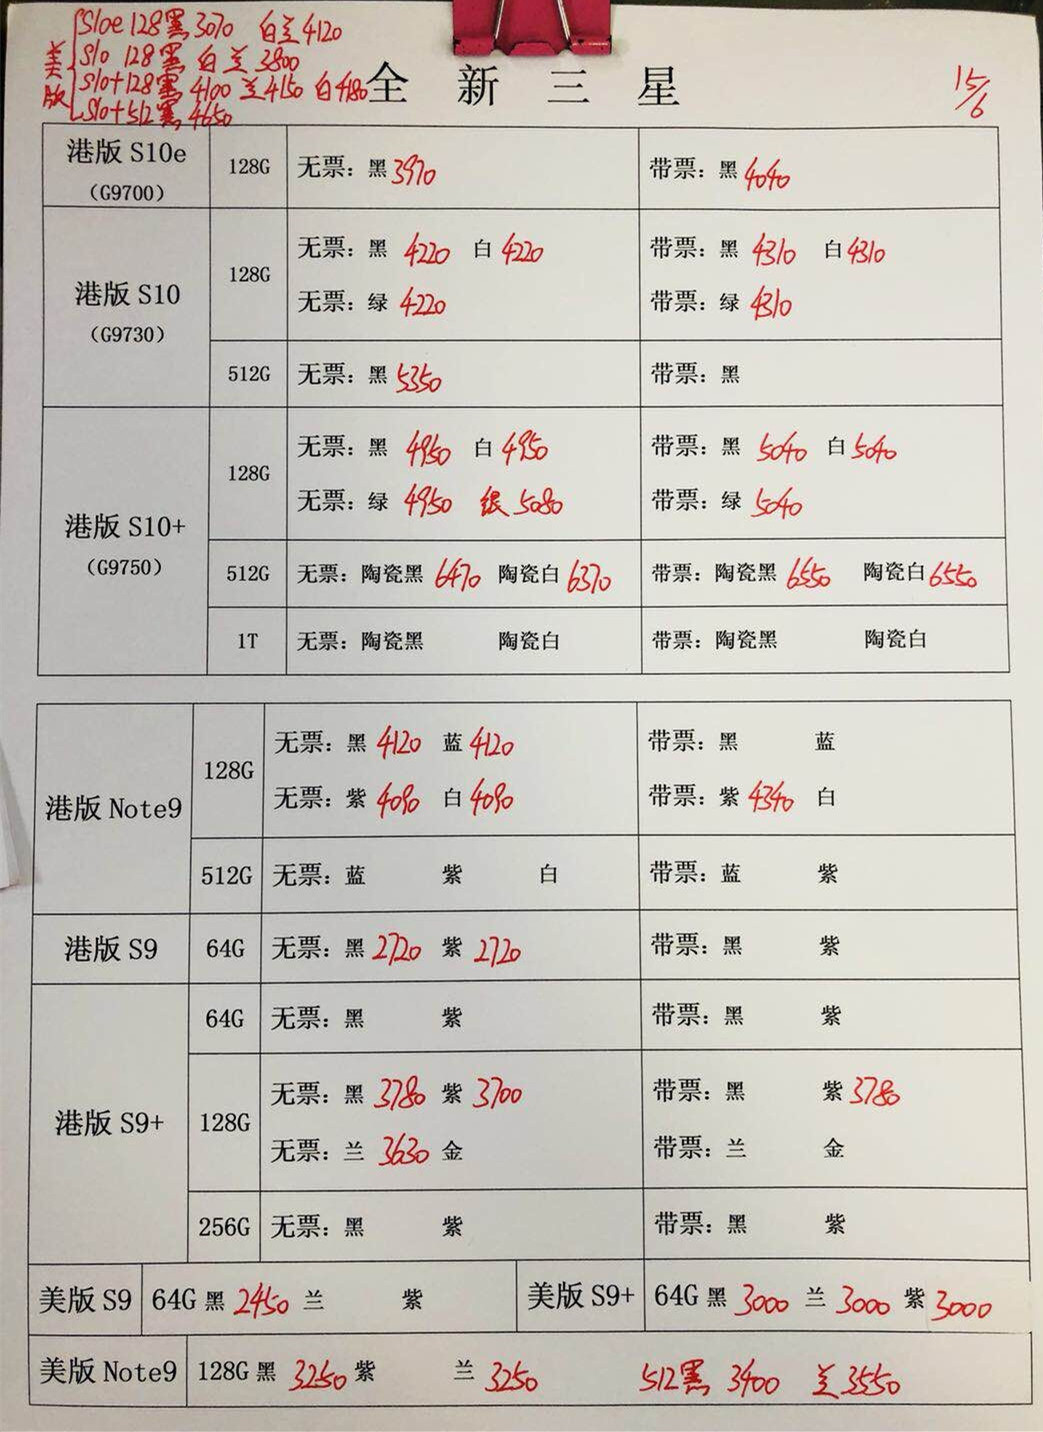 美版
S10e 128黑 3070 白兰 4120
S10 128黑 白 兰 3800
S10+128黑 4100 兰4150 白4180
S10+512黑 4650
全 新 三 星
15/6
港版 S10e
(G9700)
128G
无票：黑 3970
带票：黑 4040
港版 S10
(G9730)
128G
无票：黑 4220 白 4220
带票：黑 4310 白 4310
无票：绿 4220
带票：绿 4310
512G
无票：黑 5350
带票：黑
港版 S10+
(G9750)
128G
无票：黑 4950 白 4950
带票：黑 5040 白 5040
无票：绿 4950 银 5080
带票：绿 5040
512G
无票：陶瓷黑 6470 陶瓷白 6370
带票：陶瓷黑 6550 陶瓷白 6550
1T
无票：陶瓷黑 陶瓷白
带票：陶瓷黑 陶瓷白
港版 Note9
128G
无票：黑 4120 蓝 4120
带票：黑 蓝
无票：紫 4090 白 4090
带票：紫 4340 白
512G
无票：蓝 紫 白
带票：蓝 紫
港版 S9
64G
无票：黑 2720 紫 2720
带票：黑 紫
港版 S9+
64G
无票：黑 紫
带票：黑 紫
128G
无票：黑 3780 紫 3700
带票：黑 紫 3780
无票：兰 3630 金
带票：兰 金
256G
无票：黑 紫
带票：黑 紫
美版 S9
64G 黑 2450 兰 紫
美版 S9+
64G 黑 3000 兰 3000 紫 3000
美版 Note9
128G 黑 3250 紫 兰 3250 512黑 3400 兰 3550